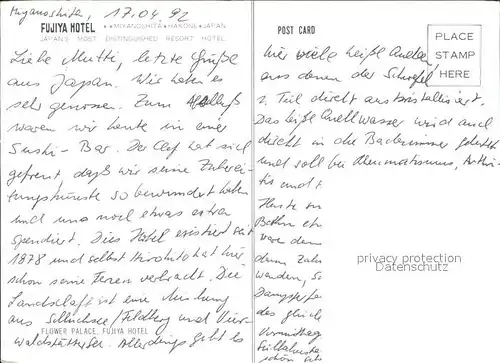 Miyanoshita, 17.04.92
FUJIYA HOTEL ★★MIYANOSHITA•HAKONE•JAPAN
JAPAN'S MOST DISTINGUISHED RESORT HOTEL
Liebe Mutti, letzte Grüße
aus Japan. Wir haben es
sehr genossen. Zum Abschluß
waren wir heute in einer
Sushi-Bar. Der Chef hat sich
gefreut daß wir seine Zuberei-
tungskünste so bewundert haben
und uns noch etwas extra
spendiert. Dies Hotel existiert seit
1878 und selbst Hirohito hat hier
schon seine Ferien verbracht. Die
Landschaft ist eine Mischung
aus Schluchsee/Feldberg und Vier-
waldstättersee. Allerdings gibt es
FLOWER PALACE, FUJIYA HOTEL
POST CARD
PLACE
STAMP
HERE
hier viele heiße Quellen,
aus denen der Schwefel
z. Teil direkt auskristallisiert.
Das heiße Quellwasser wird auch
direkt in die Badezimmer geleitet
und soll bei Rheumatismus, Arthri-
tis und
Heute
Bethen
ware de
dem Zah
wanden, S
Dampf
das glei
Vormittag
Frühlings
schön
privacy protection
Datenschutz